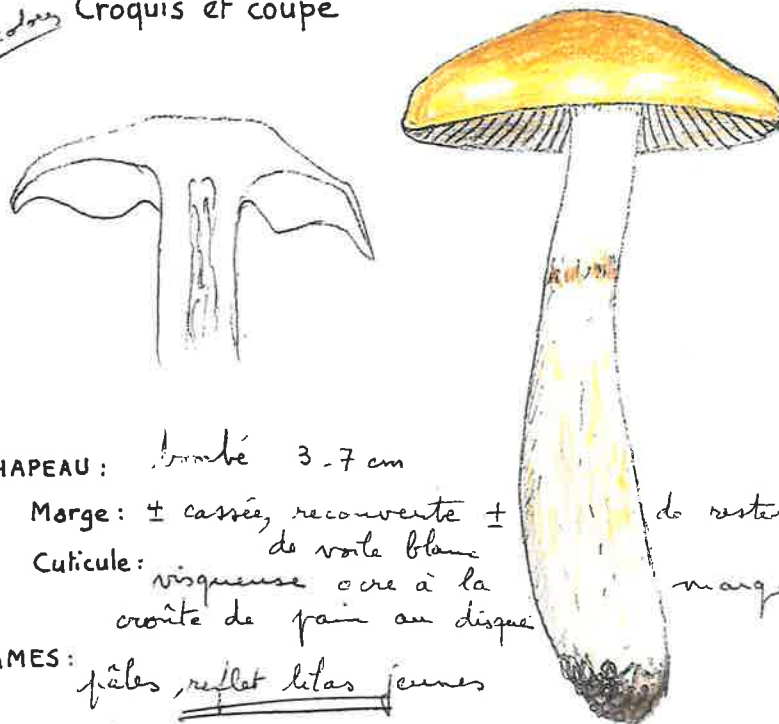 Croquis et coupe
HAPEAU : bombé 3-7 cm
Marge : ± cassée, recouverte ± de reste
de voile blanc
Cuticule : visqueuse ocre à la marg
croûte de pain au disque
MES : pâles, reflet lilas jeunes